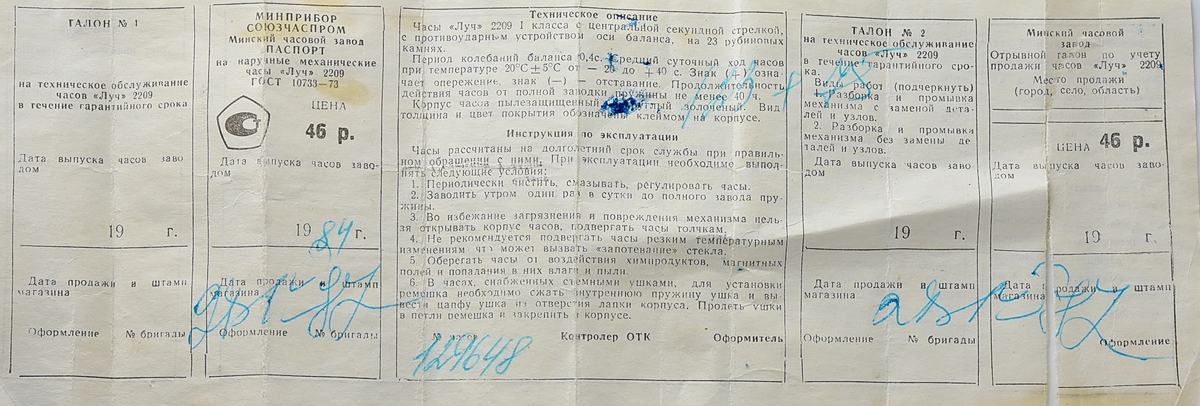 ТАЛОН № 1
на техническое обслуживание
часов «Луч» 2209
в течение гарантийного срока
Дата выпуска часов заво-
дом
19 г.
Дата продажи и штамп
магазина
Оформление № бригады
МИНПРИБОР
СОЮЗЧАСПРОМ
Минский часовой завод
ПАСПОРТ
на наручные механические
часы «Луч» 2209
ГОСТ 10733—73
ЦЕНА
46 р.
Дата выпуска часов заво-
дом
19 84 г.
Дата продажи и штамп
магазина
Оформление № бригады
Техническое описание
Часы «Луч» 2209 I класса с центральной секундной стрелкой,
с противоударным устройством оси баланса, на 23 рубиновых
камнях.
Период колебаний баланса 0,4с. Средний суточный ход часов
при температуре 20°С±5°С от — 20 до +40 с. Знак (+) озна-
чает опережение, знак (—) — отставание. Продолжительность
действия часов от полной заводки пружины не менее 40 ч.
Корпус часов пылезащищенный, круглый золоченый. Вид
толщина и цвет покрытия обозначены клеймом на корпусе.
Инструкция по эксплуатации
Часы рассчитаны на долголетний срок службы при правиль-
ном обращении с ними. При эксплуатации необходимо выпол-
нять следующие условия:
1. Периодически чистить, смазывать, регулировать часы.
2. Заводить утром один раз в сутки до полного завода пру-
жины.
3. Во избежание загрязнения и повреждения механизма нель-
зя открывать корпус часов, подвергать часы толчкам.
4. Не рекомендуется подвергать часы резким температурным
изменениям что может вызвать «запотевание» стекла.
5. Оберегать часы от воздействия химпродуктов, магнитных
полей и попадания в них влаги и пыли.
6. В часах, снабженных съемными ушками, для установки
ремешка необходимо сжать внутреннюю пружину ушка и вы-
вести цапфу ушка из отверстия лапки корпуса. Продеть ушки
в петли ремешка и закрепить в корпусе.
№ часов Контролер ОТК Оформитель
129648
ТАЛОН № 2
на техническое обслуживание
часов «Луч» 2209
в течение гарантийного сро-
ка.
Виды работ (подчеркнуть)
1. Разборка и промывка
механизма с заменой дета-
лей и узлов.
2. Разборка и промывка
механизма без замены де-
талей и узлов.
Дата выпуска часов заво-
дом
19 г.
Дата продажи и штамп
магазина
Оформление № бригады
Минский часовой
завод
Отрывной талон по учету
продажи часов «Луч» 2209
Место продажи
(город, село, область)
ЦЕНА 46 р.
Дата выпуска часов заво-
дом
19 г.
Дата продажи и штамп
магазина
Оформление